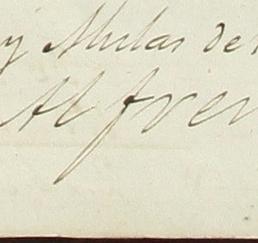 y Mulas de
Al fren